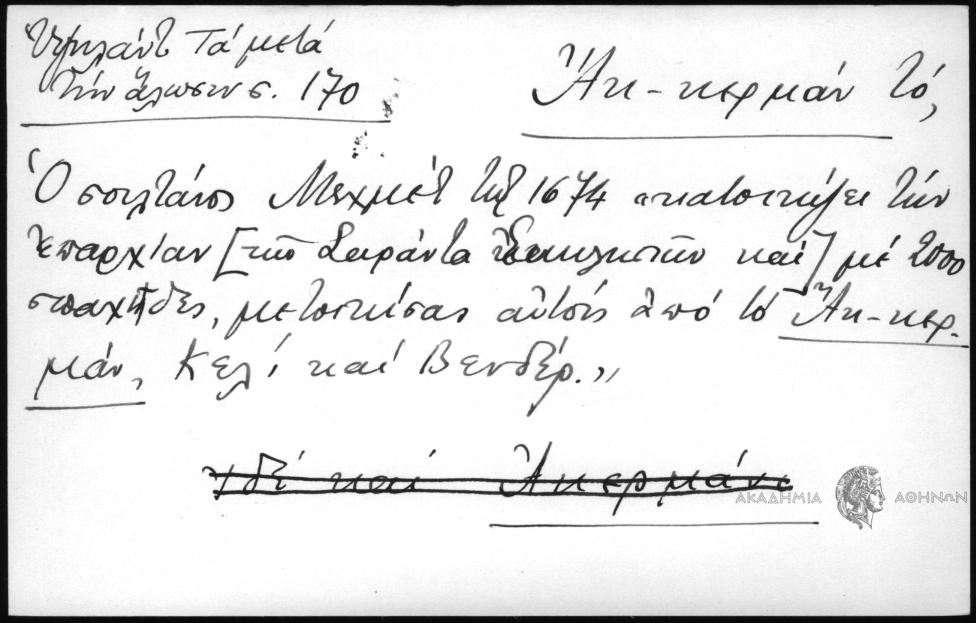 Ὑψηλάντ. Τά μετά
τήν ἅλωσιν σ. 170
Ἄκ-κερμάν τό,
Ὁ σουλτάνος Μεχμέτ τῷ 1674 «κατοικίζει τήν
ἐπαρχίαν [τῶν Σαράντα Ἐκκλησιῶν καί] μέ 2000
σπαχῆδες, μετοικίσας αὐτούς ἀπό τό Ἄκ-κερ-
μάν, Κελί καί Βενδέρ.»
ἰδέ καί Ἀκερμάνι
ΑΚΑΔΗΜΙΑ ΑΘΗΝΩΝ